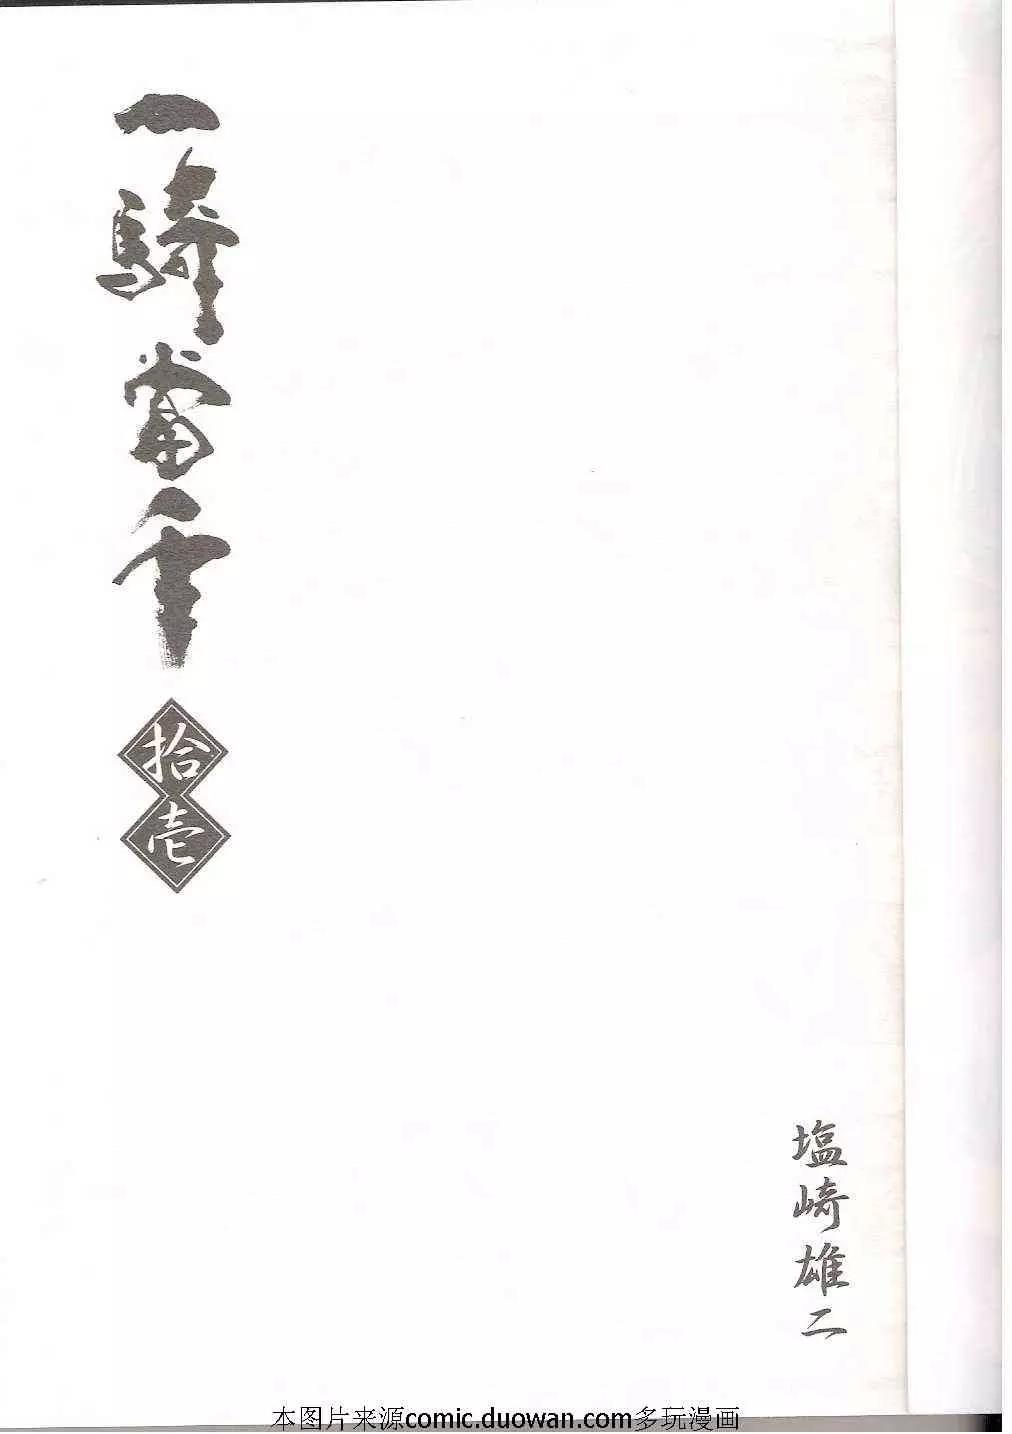 一騎當千
拾壱
塩崎雄二
本图片来源comic.duowan.com多玩漫画